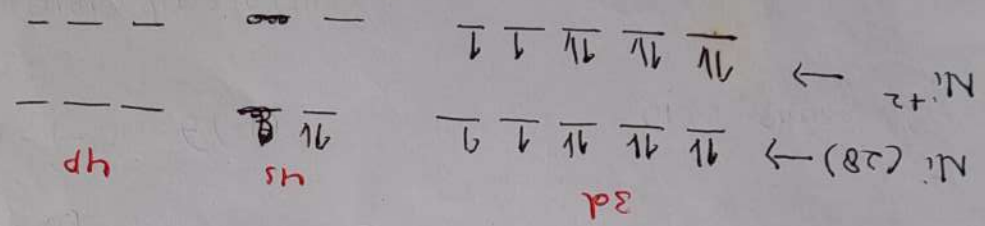 3d 4s 4p
Ni (28) → 1l 1l 1l 1 1 1l
Ni+2 → 1l 1l 1l 1 1